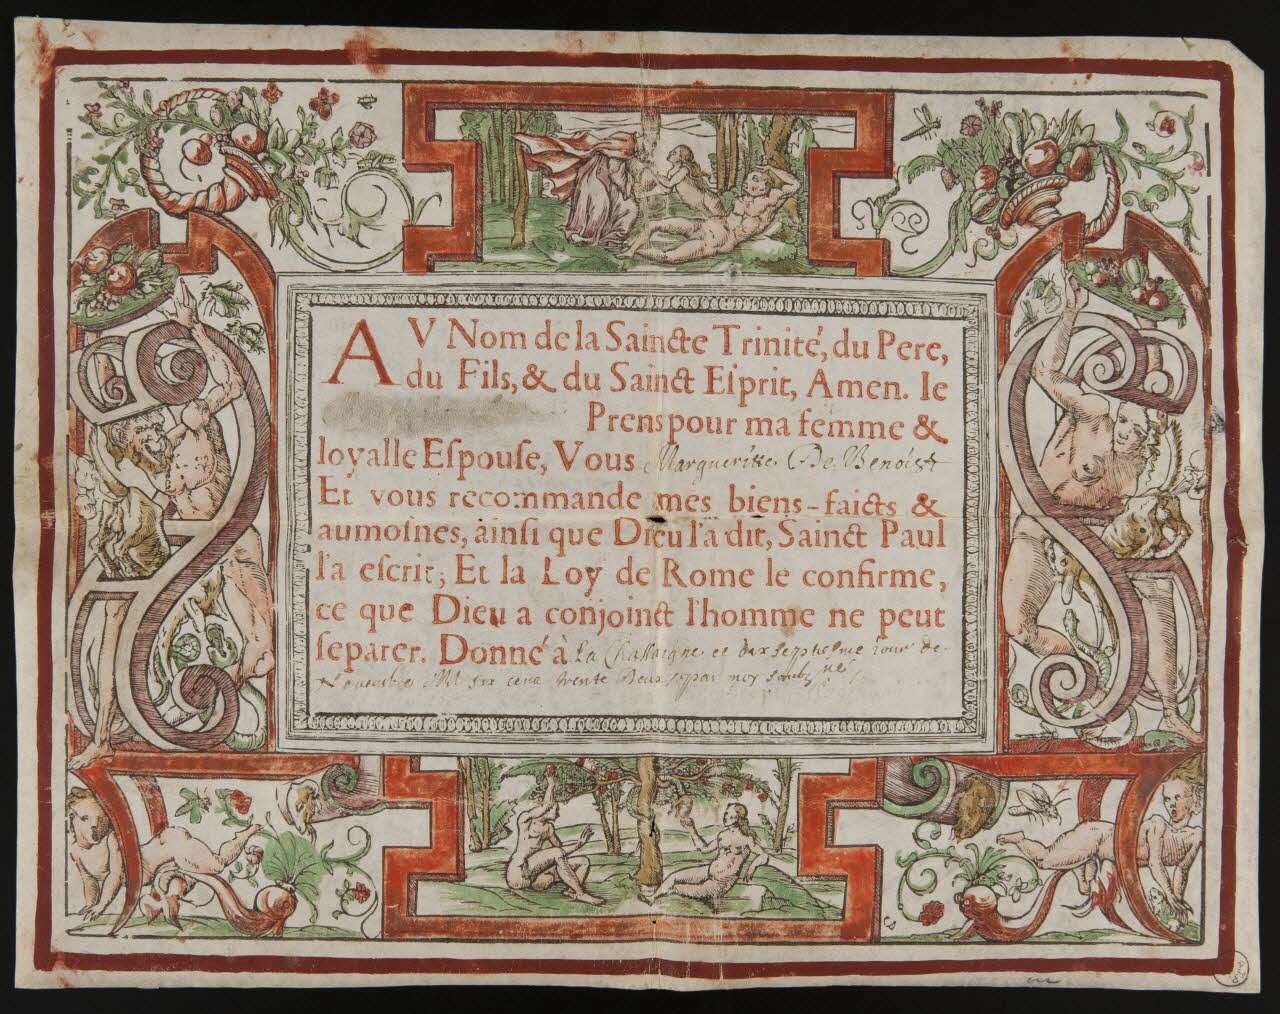 AV Nom de la Saincte Trinité, du Pere,
du Fils, & du Sainct Esprit, Amen. Ie
Prens pour ma femme &
loyalle Espouse, Vous Margueritte De Benoist
Et vous recommande mes biens-faicts &
aumosnes, ainsi que Dieu l'a dit, Sainct Paul
l'a escrit, Et la Loy de Rome le confirme,
ce que Dieu a conjoinct l'homme ne peut
separer. Donné à La Chassaigne ce dix septiesme iour de
Novembre Mil six cens trente deux par moy